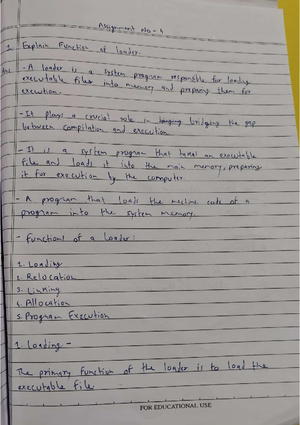 Assignment No - 4
1. Explain Function of loader.
- A loader is a system program responsible for loading
executable files into memory and preparing them for
execution.
- It plays a crucial role in bridging the gap
between compilation and execution
- It is a system program that takes an executable
file and loads it into the main memory, preparing
it for execution by the computer.
- A program that loads the machine code of a
program into the system memory.
- Functions of a Loader:
1. Loading
2. Relocation
3. Linking
4. Allocation
5. Program Execution
1. Loading -
The primary function of the loader is to load the
executable file
FOR EDUCATIONAL USE